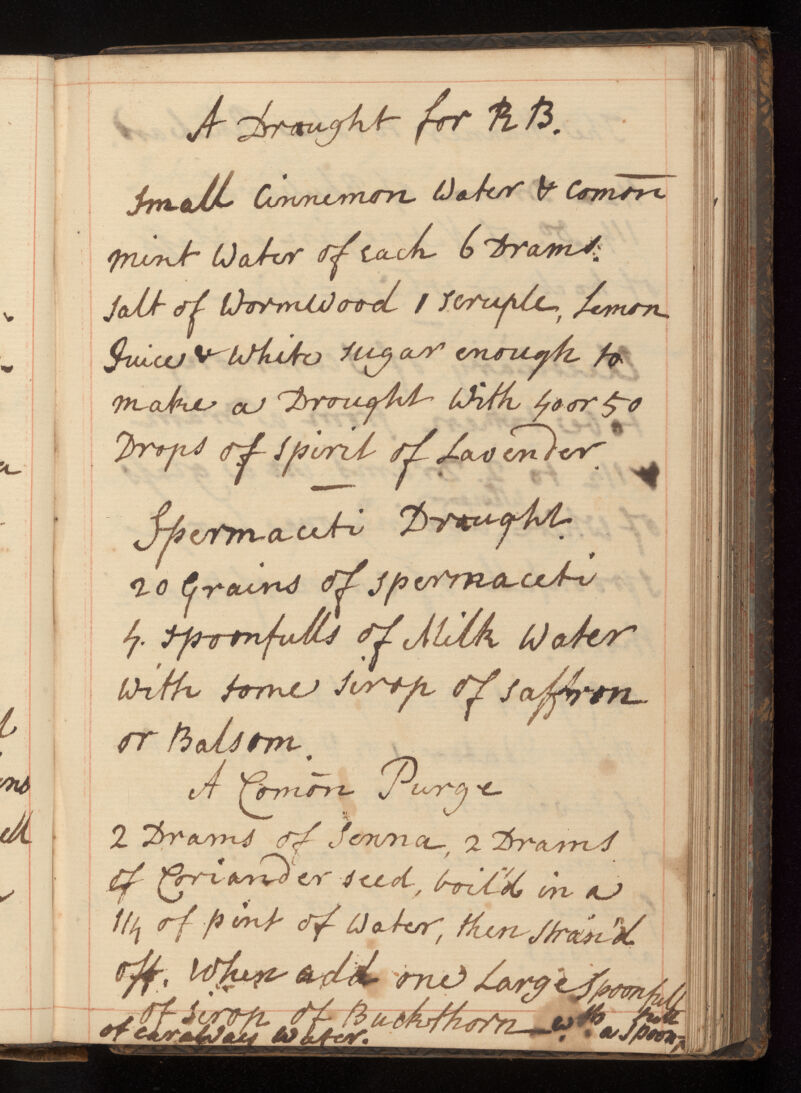 A Draught for RB.
Small Cinnemon Water & Comōn
mint Water of each 6 Drams.
Salt of Wormwood 1 scruple, Lemon
Juice & White sugar enough to
make a Drought With 40 or 50
Drops of Spirit of Lavender.
Spermaceti Draught.
20 Grains of spermaceti
4. spoonfulls of Milk Water
With some Sirop of saffron
or Balsom.
A Comōn Purge
2 Drams of Senna, 2 Drams
of Coriander seed, boil'd in a
1/4 of pint of Water, then strain'd
off. When add one Large Spoonfull
of Sirop of Buckthorn wth a Spoon,
full
of caraway Water.